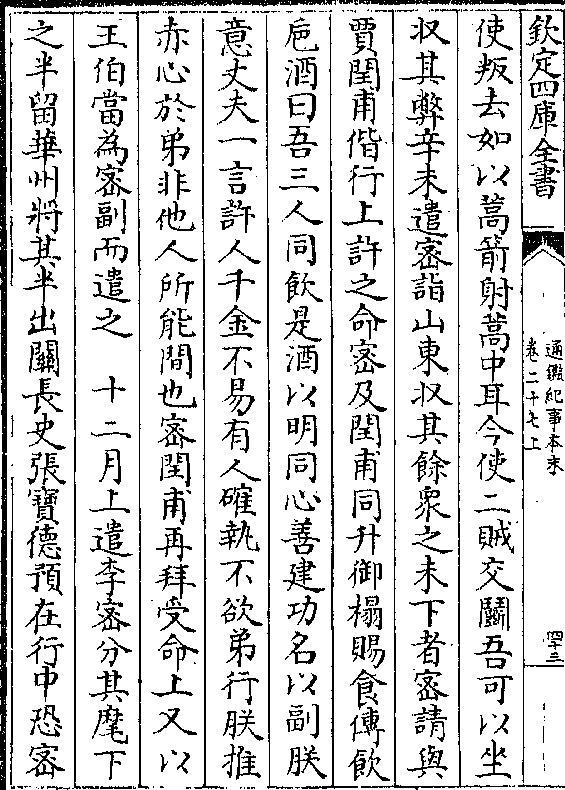 欽定四庫全書
通鑑紀事本末
卷二十七上
四十三
使叛去如以蒿箭射蒿中耳今使二賊交鬭吾可以坐
收其弊辛未遣密詣山東收其餘衆之未下者密請與
賈閏甫偕行上許之命密及閏甫同升御榻賜食傳飲
巵酒曰吾三人同飲是酒以明同心善建功名以副朕
意丈夫一言許人千金不易有人確執不欲弟行朕推
赤心於弟非他人所能間也密閏甫再拜受命上又以
王伯當為密副而遣之　十二月上遣李密分其麾下
之半留華州將其半出關長史張寶德預在行中恐密